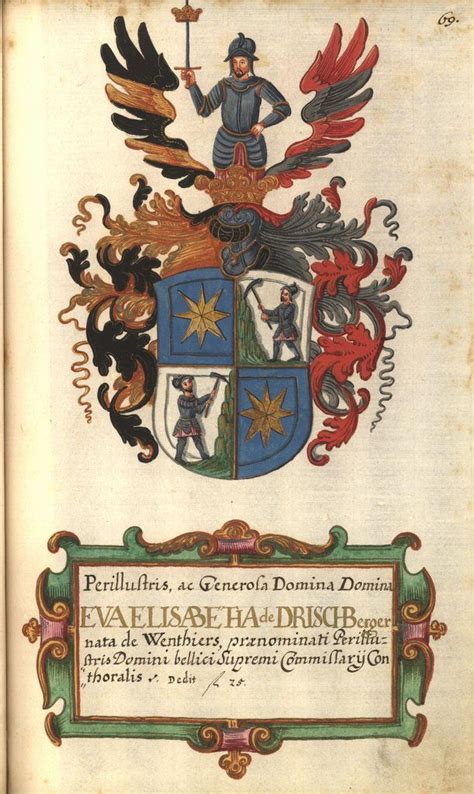 69.
Perillustris, ac Generosa Domina Domina
EVA ELISABETHA de DRISCHBerger
nata de Wenthiers, prænominati Perillu-
stris Domini bellici Supremi Commissarÿ Con
"thoralis Dedit f 25.